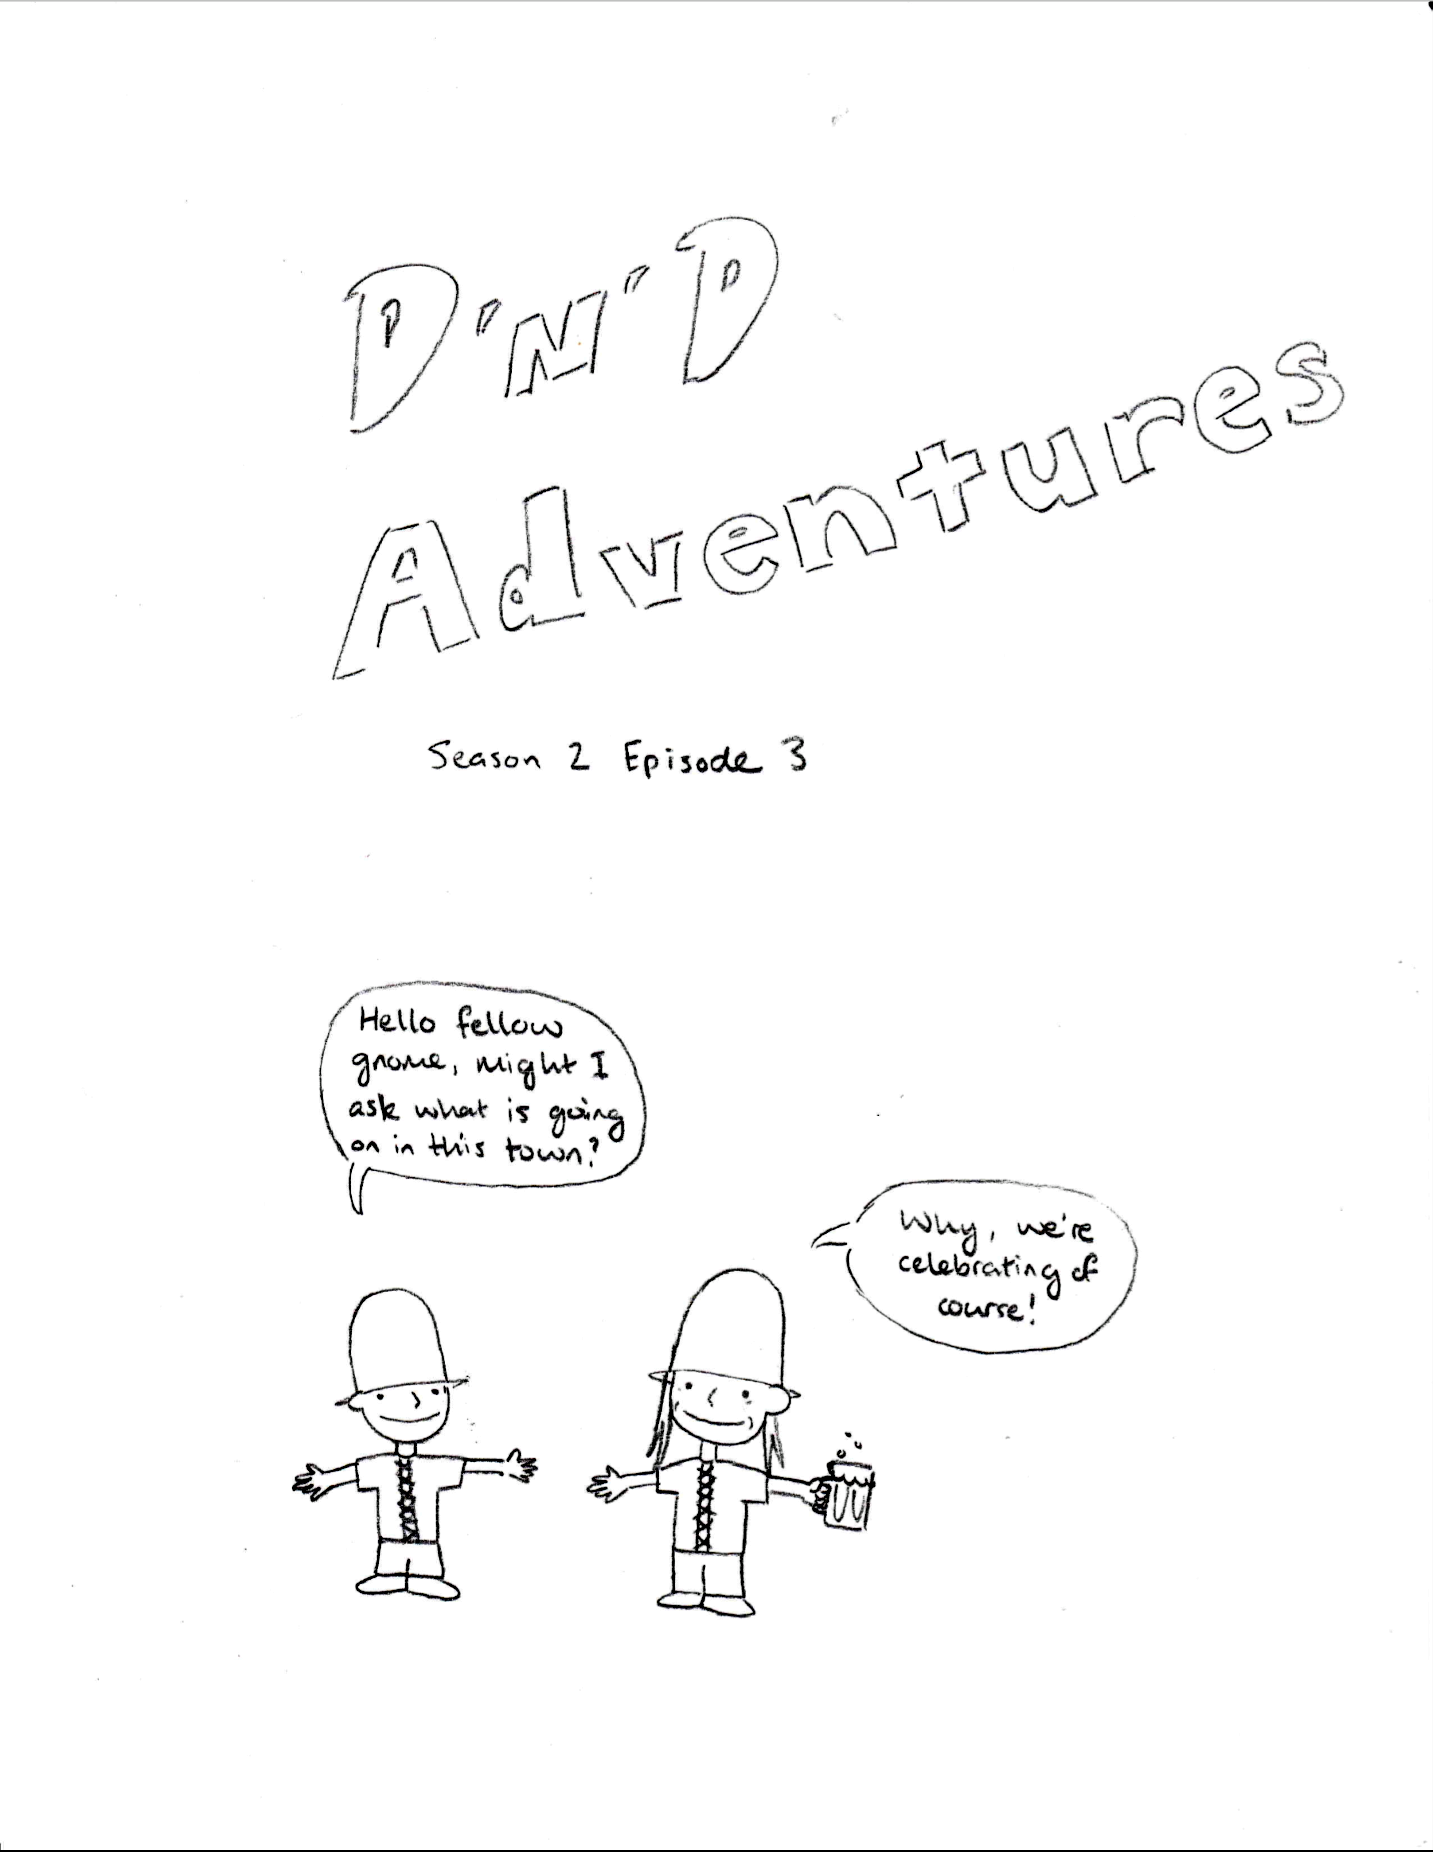 D'N'D
Adventures
Season 2 Episode 3
Hello fellow
gnome, might I
ask what is going
on in this town?
Why, we're
celebrating of
course!